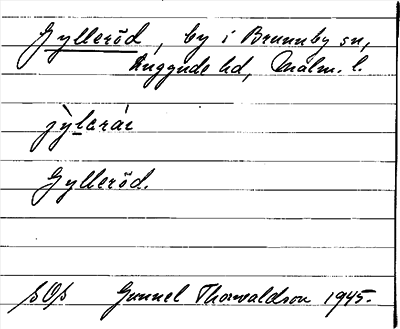 Gylleröd, by i Brunnby sn,
Luggude hd, Malm. l.
jỳlerár
Gylleröd.
SOS Gunnel Thorwaldson 1945.